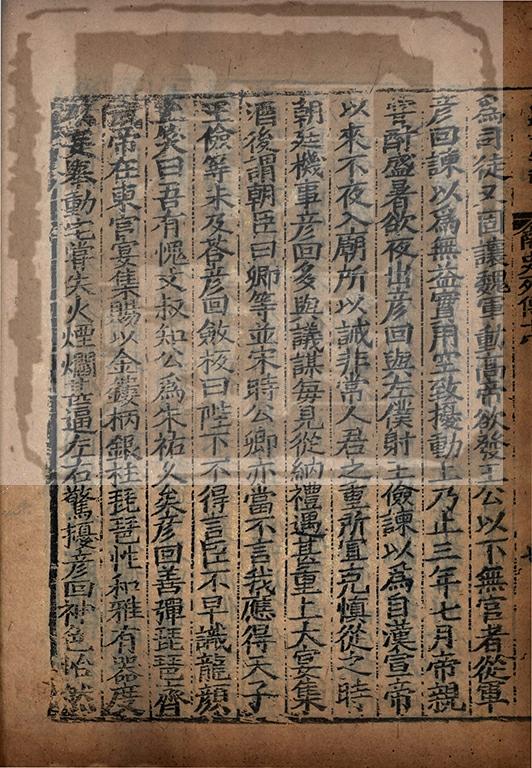 為司徒又固讓魏軍動高帝欲發王公以下無官者從軍
彦回諫以為無益實用空致擾動上乃止三年七月帝親
甞酎盛暑欲夜出彦回與左僕射王儉諫以為自漢宣帝
以來不夜入廟所以誡非常人君之重所宜克慎從之時
朝廷機事彦回多與議謀每見從納禮遇甚重上大宴集
酒後謂朝臣曰卿等並宋時公卿亦當不言我應得天子
王儉等未及荅彦回斂板曰陛下不得言臣不早識龍顔
上笑曰吾有愧文叔知公為朱祐久矣彦回善彈琵琶齊
武帝在東宫宴集賜以金鏤柄銀柱琵琶性和雅有器度
不妄舉動宅嘗失火煙爓甚逼左右驚擾彦回神色怡然